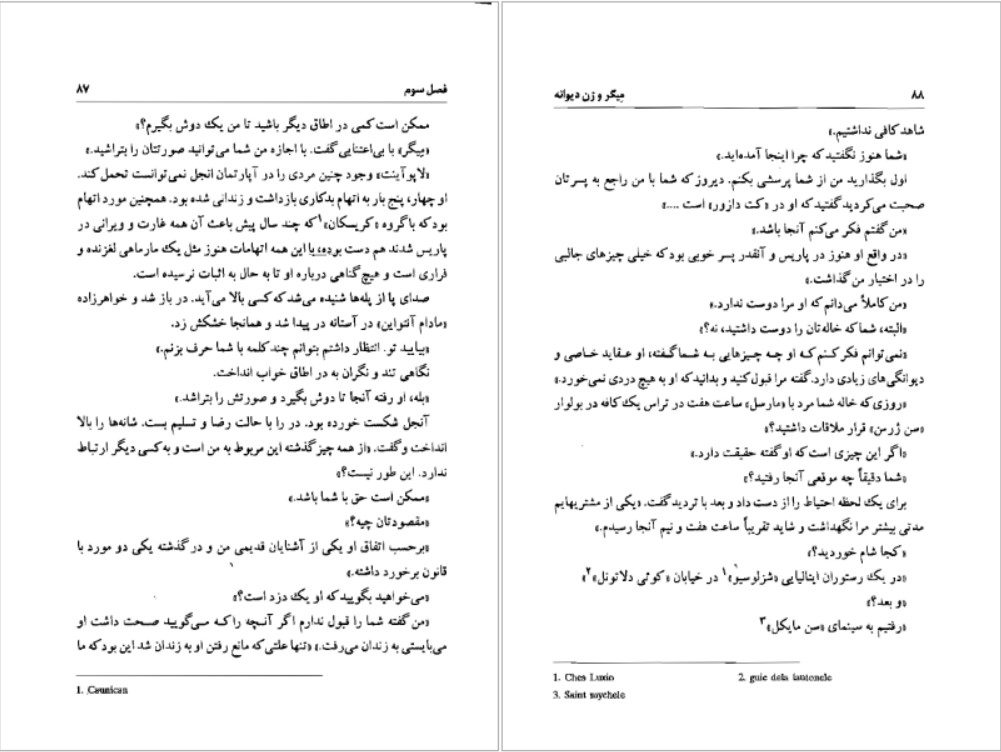 فصل سوم ۸۷
ممکن است کمی در اطاق دیگر باشید تا من یک دوش بگیرم؟»
«میگر» با بی‌اعتنایی گفت. با اجازه من شما می‌توانید صورتتان را بتراشید.»
«لاپوآینت» وجود چنین مردی را در آپارتمان انجل نمی‌توانست تحمل کند.
او چهار، پنج بار به اتهام بدکاری بازداشت و زندانی شده بود. همچنین مورد اتهام
بود که با گروه «کریسکان»۱ که چند سال پیش باعث آن همه غارت و ویرانی در
پاریس شدند هم دست بوده، با این همه اتهامات هنوز مثل یک مارماهی لغزنده و
فراری است و هیچ گناهی درباره او تا به حال به اثبات نرسیده است.
صدای پا از پله‌ها شنیده می‌شد که کسی بالا می‌آید. در باز شد و خواهرزاده
«مادام آنتواین» در آستانه در پیدا شد و همانجا خشکش زد.
«بیایید تو. انتظار داشتم بتوانم چند کلمه با شما حرف بزنم.»
نگاهی تند و نگران به در اطاق خواب انداخت.
«بله، او رفته آنجا تا دوش بگیرد و صورتش را بتراشد.»
آنجل شکست خورده بود. در را با حالت رضا و تسلیم بست. شانه‌ها را بالا
انداخت و گفت. «از همه چیز گذشته این مربوط به من است و به کسی دیگر ارتباط
ندارد. این طور نیست؟»
«ممکن است حق با شما باشد.»
«مقصودتان چیه؟»
«برحسب اتفاق او یکی از آشنایان قدیمی من و در گذشته یکی دو مورد با
قانون برخورد داشته.»
«می‌خواهید بگویید که او یک دزد است؟»
«من گفته شما را قبول ندارم اگر آنچه را که می‌گویید صحت داشت او
می‌بایستی به زندان می‌رفت.» «تنها علتی که مانع رفتن او به زندان شد این بود که ما
1. Caunican
۸۸ میگر و زن دیوانه
شاهد کافی نداشتیم.»
«شما هنوز نگفتید که چرا اینجا آمده‌اید.»
اول بگذارید من از شما پرسشی بکنم. دیروز که شما با من راجع به پسرتان
صحبت می‌کردید گفتید که او در «کت دازور» است ....»
«من گفتم فکر می‌کنم آنجا باشد.»
«در واقع او هنوز در پاریس و آنقدر پسر خوبی بود که خیلی چیزهای جالبی
را در اختیار من گذاشت.»
«من کاملاً می‌دانم که او مرا دوست ندارد.»
«البته، شما که خاله‌تان را دوست داشتید، نه؟»
«نمی‌توانم فکر کنم که او چه چیزهایی به شما گفته، او عقاید خاصی و
دیوانگی‌های زیادی دارد. گفته مرا قبول کنید و بدانید که او به هیچ دردی نمی‌خورد.»
«روزی که خاله شما مرد با «مارسل» ساعت هفت در تراس یک کافه در بولوار
«سن ژرمن» قرار ملاقات داشتید؟»
«اگر این چیزی است که او گفته حقیقت دارد.»
«شما دقیقاً چه موقعی آنجا رفتید؟»
برای یک لحظه احتیاط را از دست داد و بعد با تردید گفت. «یکی از مشتریهایم
مدتی بیشتر مرا نگهداشت و شاید تقریباً ساعت هفت و نیم آنجا رسیدم.»
«کجا شام خوردید؟»
«در یک رستوران ایتالیایی «شزلوسیو»۱ در خیابان «کوئی دلاتونل»۲»
«و بعد؟»
«رفتیم به سینمای «سن مایکل»۳
1. Ches Luxio 2. guie dela lautonele
3. Saint mychele